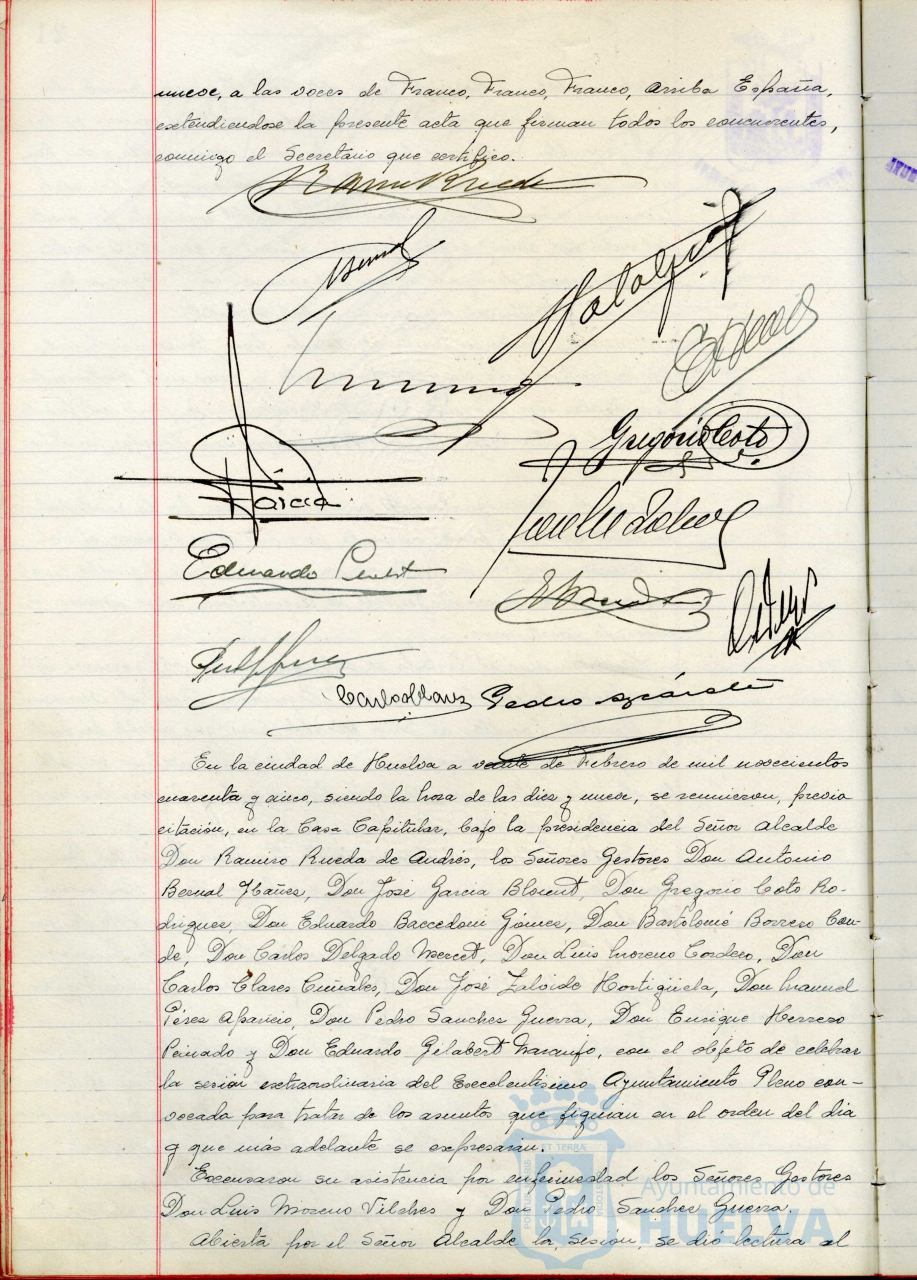 nueve, a las voces de Franco, Franco, Franco, Arriba España,
extendiendose la presente acta que firman todos los concurrentes,
conmigo el Secretario que certifico.
García
Gregorio Coto
Eduardo
Carlos Clares Pedro
En la ciudad de Huelva a veinte de Febrero de mil novecientos
cuarenta y cinco, siendo la hora de las diez y nueve, se reunieron, previa
citación, en la Casa Capitular, bajo la presidencia del Señor Alcalde
Don Ramiro Rueda de Andrés, los Señores Gestores Don Antonio
Bernal Ibañez, Don José Garcia Don Gregorio Coto Ro-
driguez, Don Eduardo Baccedoni Gómez, Don Bartolomé Borrero Con-
de, Don Carlos Delgado Mercet, Don Luis Moreno Cordero, Don
Carlos Clares Don José Zalvide Hortigüela, Don Manuel
Pérez Aparicio, Don Pedro Sanchez Guerra, Don Enrique Herrero
Peinado y Don Eduardo Gilabert Naranjo, con el objeto de celebrar
la sesión extraordinaria del Excelentisimo Ayuntamiento Pleno con-
vocada para tratar de los asuntos que figuran en el orden del dia
y que más adelante se expresarán.
Excusaron su asistencia por enfermedad los Señores Gestores
Don Luis Moreno Vilches y Don Pedro Sanchez Guerra.
Abierta por el Señor Alcalde la sesion, se dió lectura al
Ayuntamiento de
HUELVA